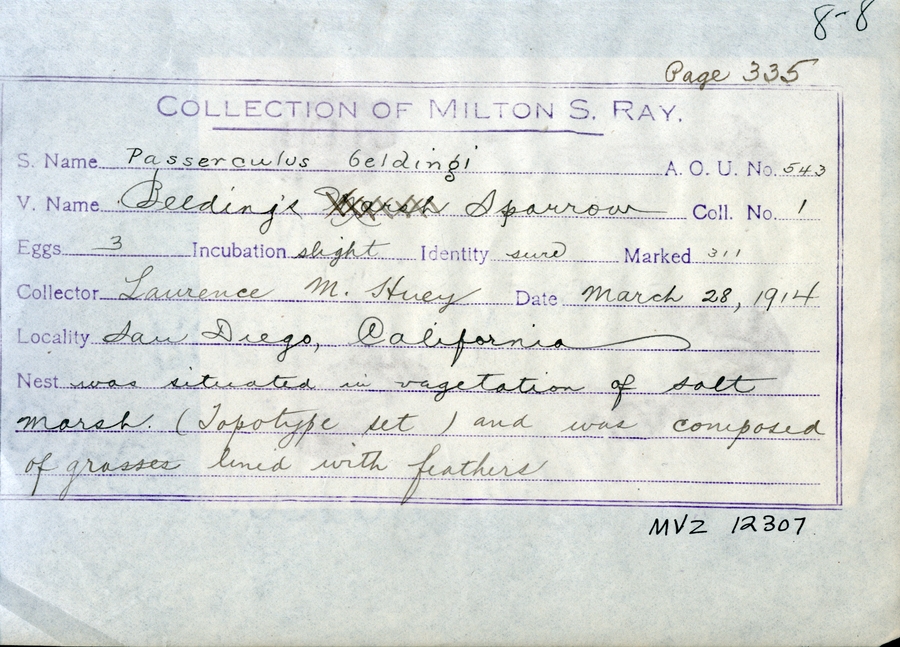 8-8
Page 335
COLLECTION OF MILTON S. RAY.
S. Name Passerculus beldingi A. O. U. No. 543
V. Name Belding's Marsh Sparrow Coll. No. 1
Eggs 3 Incubation slight Identity sure Marked 311
Collector Laurence M. Huey Date March 28, 1914
Locality San Diego, California
Nest was situated in vagetation of salt
marsh. (Topotype set) and was composed
of grasses lined with feathers
MVZ 12307